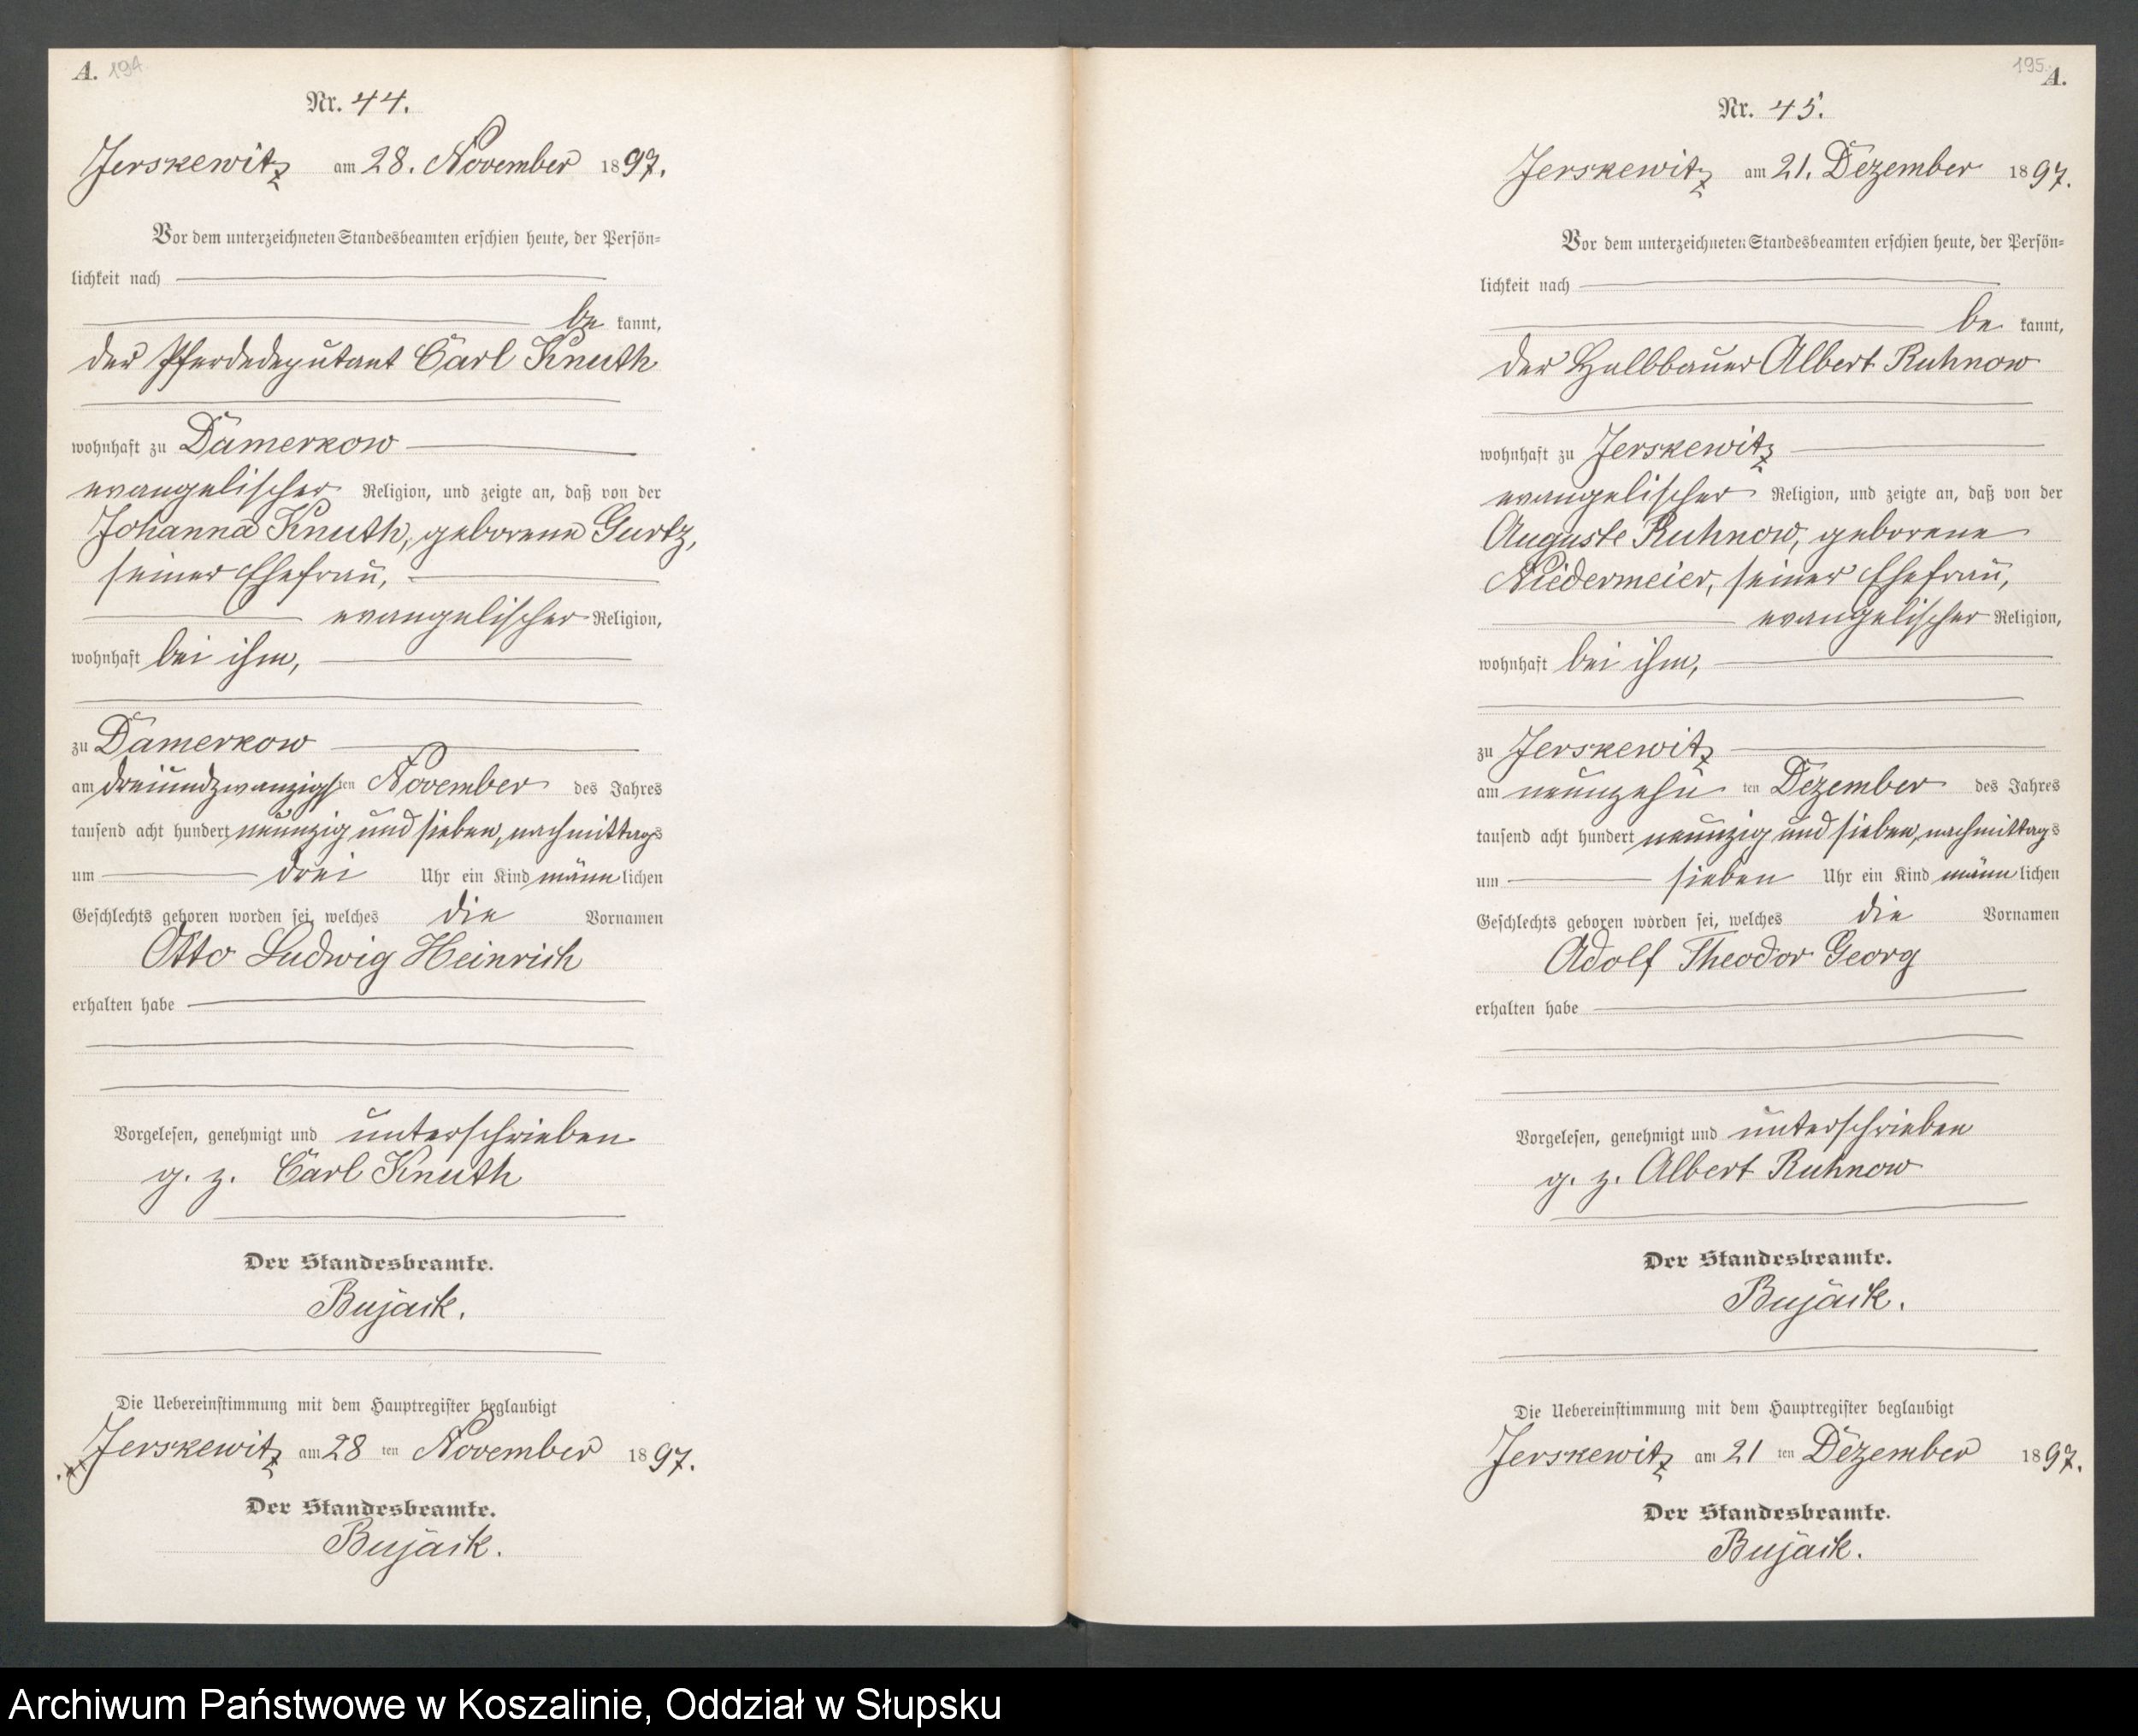 A. 194.
Nr. 44.
Jerskewitz am 28. November 1897.
Vor dem unterzeichneten Standesbeamten erschien heute, der Persön=
lichkeit nach
be kannt,
der Pferdedeputant Carl Knuth
wohnhaft zu Damerkow
evangelischer Religion, und zeigte an, daß von der
Johanna Knuth, geborene Gurtz,
seiner Ehefrau,
evangelischer Religion,
wohnhaft bei ihm,
zu Damerkow
am dreiundzwanzigsten November des Jahres
tausend acht hundert neunzig und sieben, nachmittags
um drei Uhr ein Kind männlichen
Geschlechts geboren worden sei, welches die Vornamen
Otto Ludwig Heinrich
erhalten habe
Vorgelesen, genehmigt und unterschrieben
g. z. Carl Knuth
Der Standesbeamte.
Bujack.
Die Uebereinstimmung mit dem Hauptregister beglaubigt
Jerskewitz am 28 ten November 1897.
Der Standesbeamte.
Bujack.
195. A.
Nr. 45.
Jerskewitz am 21. Dezember 1897.
Vor dem unterzeichneten Standesbeamten erschien heute, der Persön=
lichkeit nach
be kannt,
der Halbbauer Albert Ruhnow
wohnhaft zu Jerskewitz
evangelischer Religion, und zeigte an, daß von der
Auguste Ruhnow, geborene
Niedermeier, seiner Ehefrau,
evangelischer Religion,
wohnhaft bei ihm,
zu Jerskewitz
am neunzehn ten Dezember des Jahres
tausend acht hundert neunzig und sieben, nachmittags
um sieben Uhr ein Kind männlichen
Geschlechts geboren worden sei, welches die Vornamen
Adolf Theodor Georg
erhalten habe
Vorgelesen, genehmigt und unterschrieben
g. z. Albert Ruhnow
Der Standesbeamte.
Bujack.
Die Uebereinstimmung mit dem Hauptregister beglaubigt
Jerskewitz am 21 ten Dezember 1897.
Der Standesbeamte.
Bujack.
Archiwum Państwowe w Koszalinie, Oddział w Słupsku